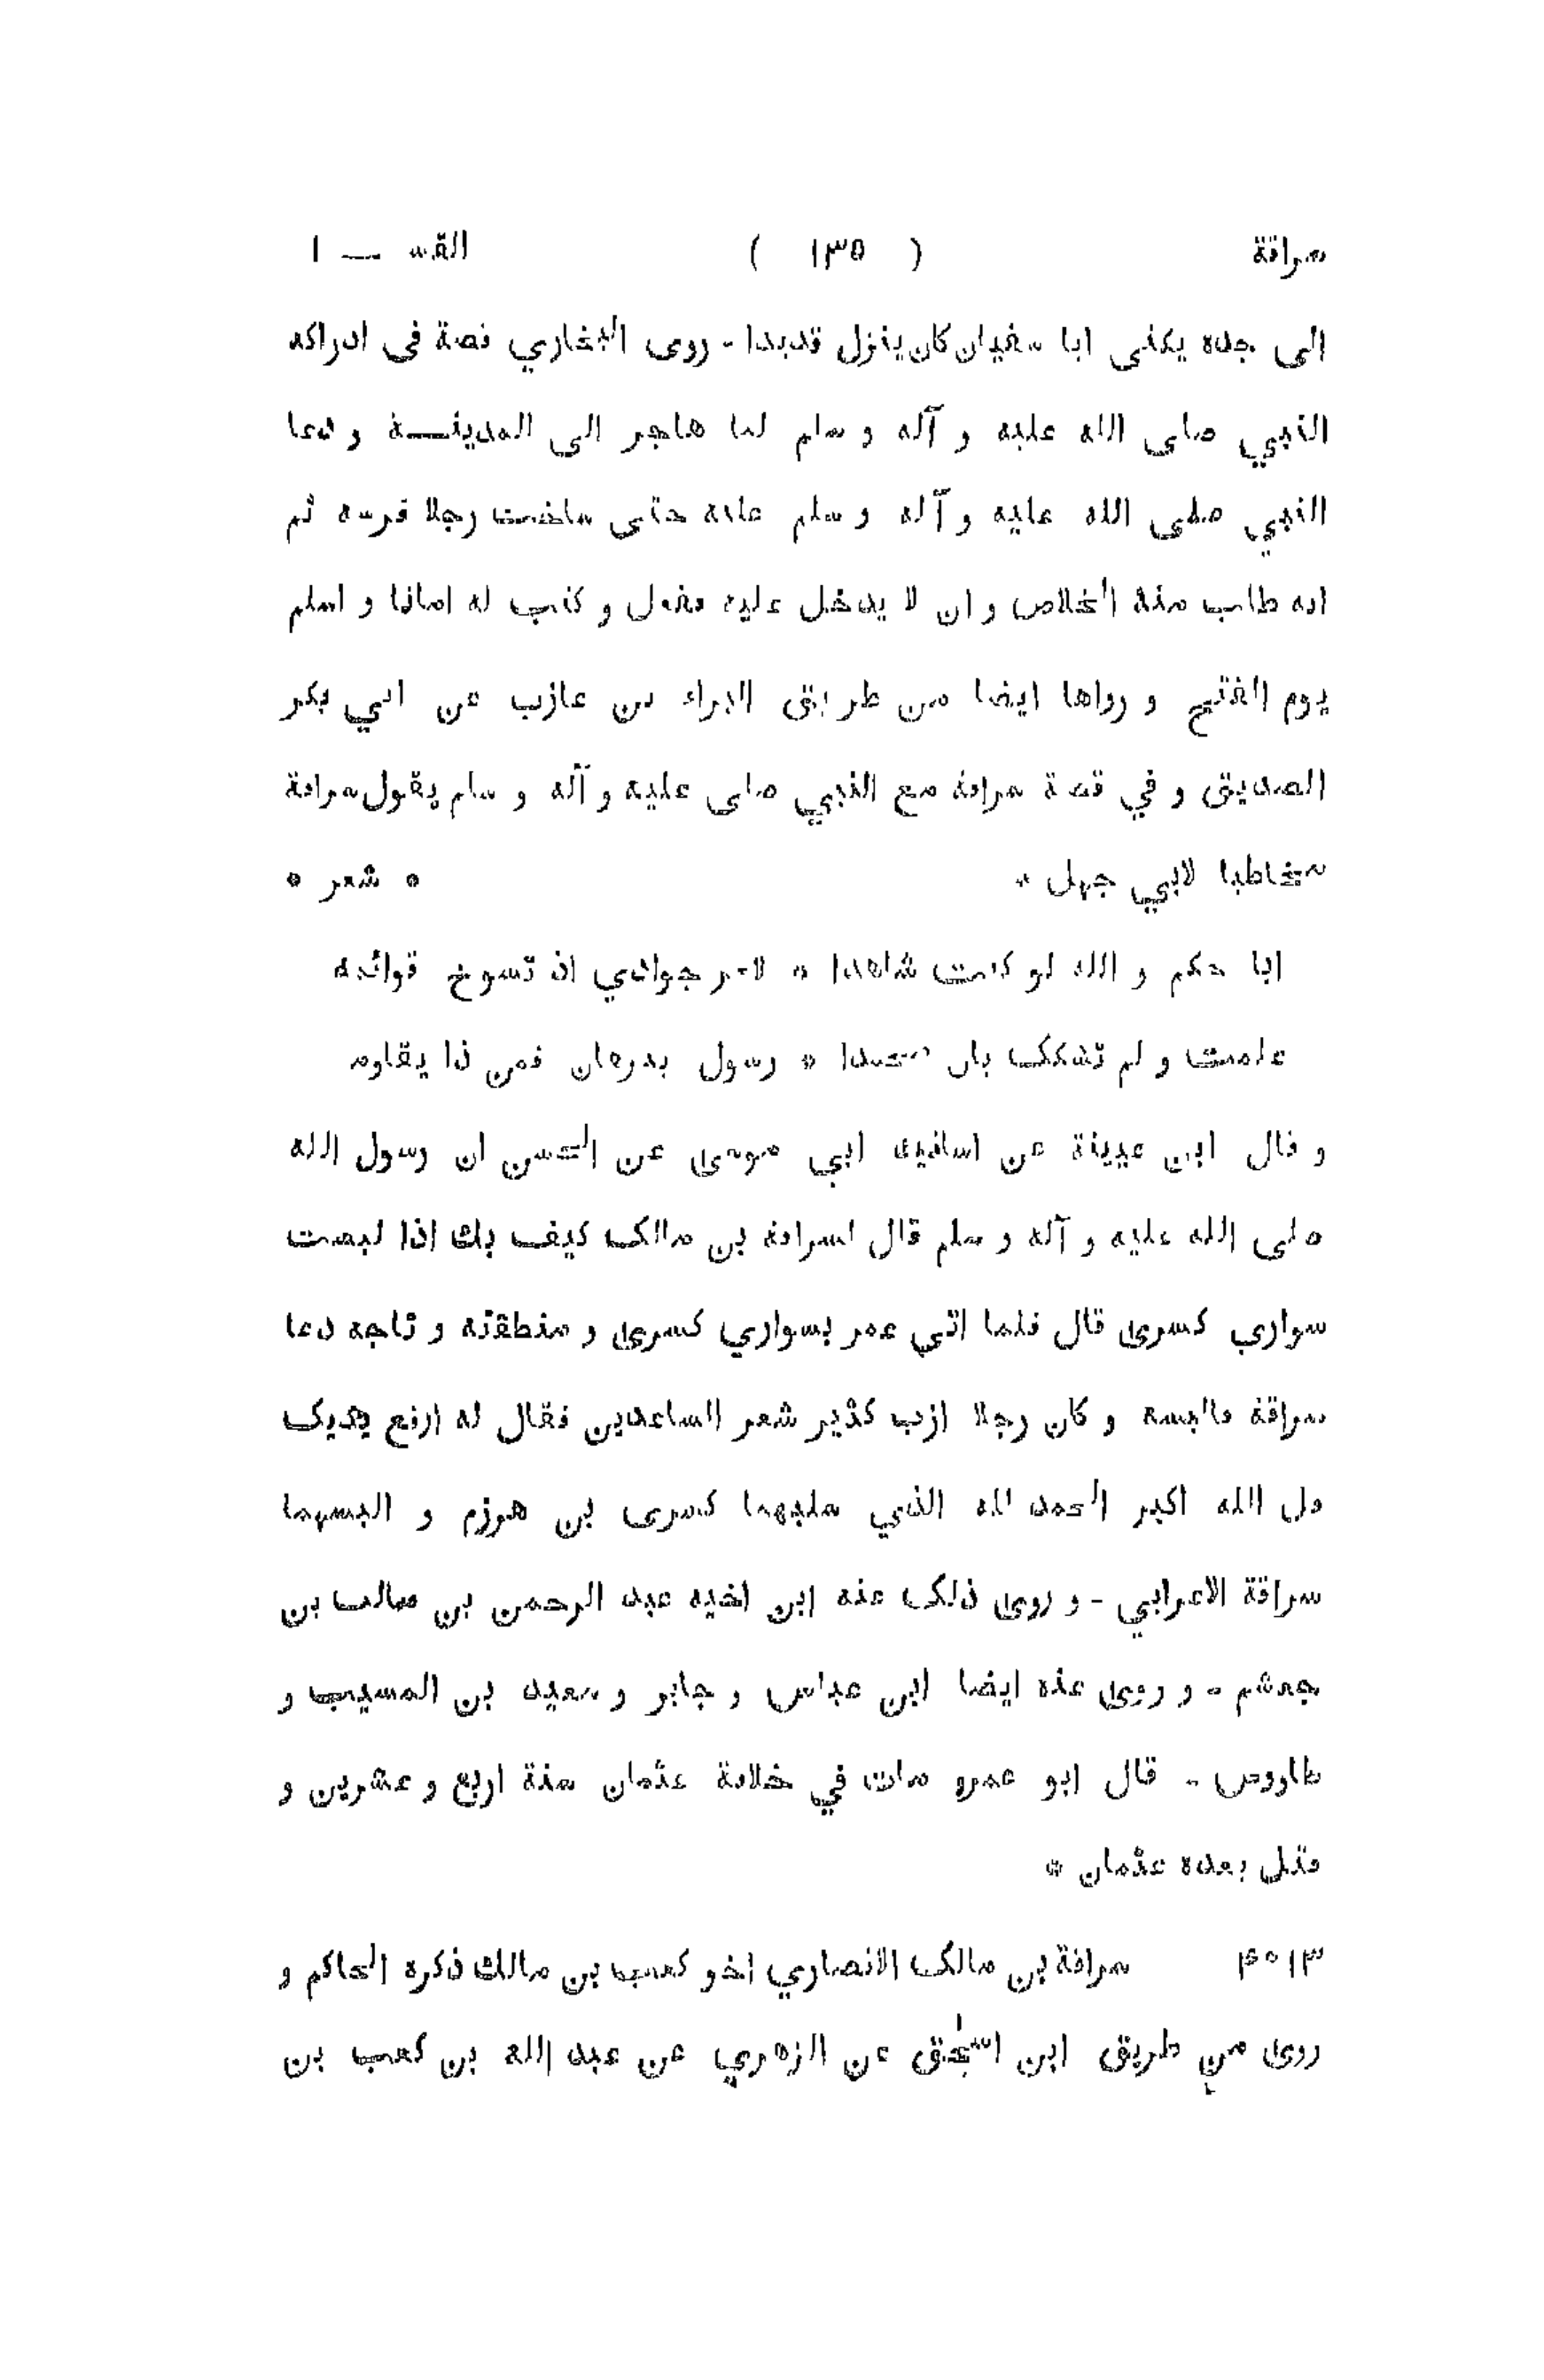 سراقة ( ١٣٥ ) القسـ ــ ١
الى جده يكنى ابا سفيان كان ينزل قديدا - روى البخاري قصة فى ادراكه
النبي صلى الله عليه و آله و سلم لما هاجر الى المدينـــة و دعا
النبي صلى الله عليه و آله و سلم عليه حتى ساخت رجلا فرسه ثم
انه طلب منه الخلاص و ان لا يدخل عليه ففعل و كتب له امانا و اسلم
يوم الفتح و رواها ايضا من طريق البراء بن عازب عن ابي بكر
الصديق و في قصة سراقة مع النبي صلى عليه و آله و سلم يقول سراقة
مخاطبا لابي جهل * * شعر *
ابا حكم و الله لو كنت شاهدا * لامر جوادي اذ تسوخ قوائمه
علمت و لم تشكك بان محمدا * رسول ببرهان فمن ذا يقاومه
و قال ابن عيينة عن اسانيد ابي موسى عن الحسن ان رسول الله
صلى الله عليه و آله و سلم قال لسراقة بن مالك كيف بك اذا لبست
سواري كسرى قال فلما اتي عمر بسواري كسرى و منطقته و تاجه دعا
سراقة فالبسه و كان رجلا ازب كثير شعر الساعدين فقال له ارفع يديك
قل الله اكبر الحمد لله الذي سلبهما كسرى بن هرزم و البسهما
سراقة الاعرابي - و روى ذلك عنه ابن اخيه عبد الرحمن بن مالك بن
جعشم - و روى عنه ايضا ابن عباس و جابر و سعيد بن المسيب و
طاروس - قال ابو عمرو مات في خلافة عثمان سنة اربع و عشرين و
قتل بعده عثمان *
٣١٥٤ سراقة بن مالك الانصاري اخو كعب بن مالك ذكره الحاكم و
روى من طريق ابن اسحٰق عن الزهري عن عبد الله بن كعب بن